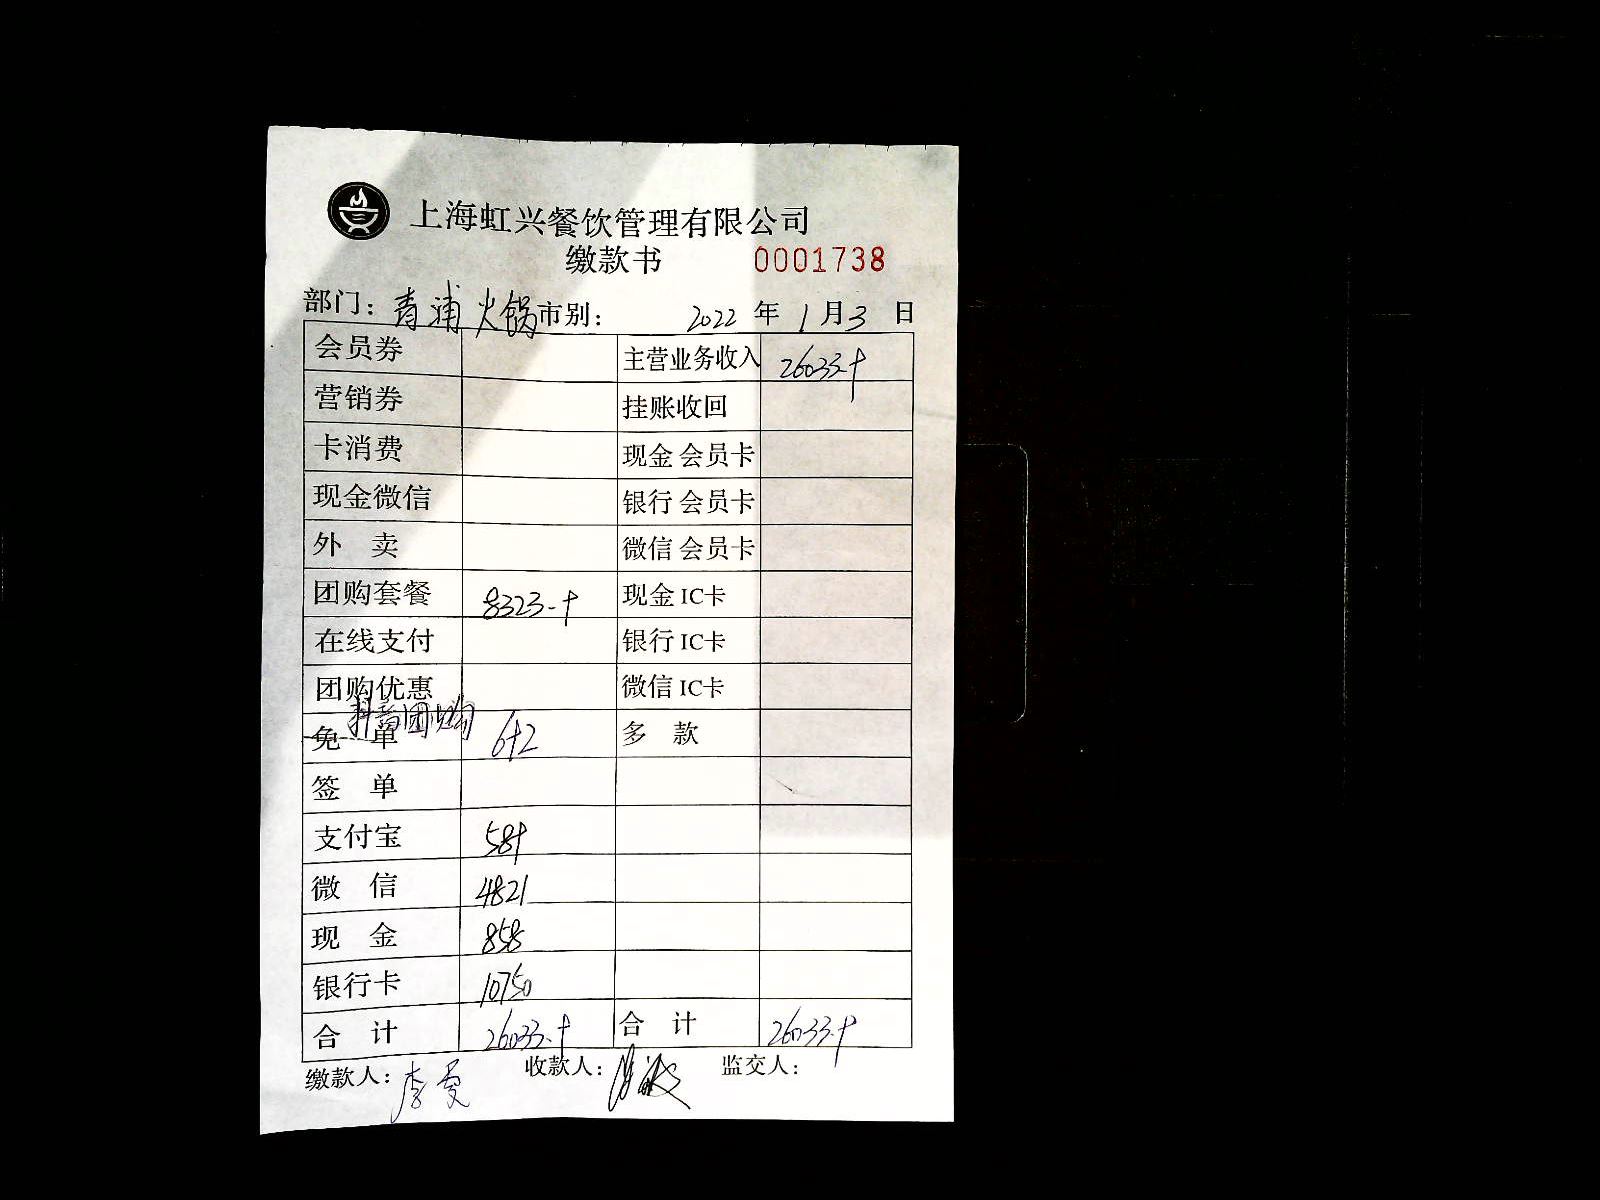 上海虹兴餐饮管理有限公司
缴款书 0001738
部门：青浦火锅 市别： 2022 年 1 月 3 日
会员券 主营业务收入 26033.9
营销券 挂账收回
卡消费 现金 会员卡
现金微信 银行 会员卡
外 卖 微信 会员卡
团购套餐 8323.9 现金 IC卡
在线支付 银行 IC卡
团购优惠 微信 IC卡
抖音团购
免 单 692 多 款
签 单
支付宝 589
微 信 4821
现 金 858
银行卡 10750
合 计 26033.9 合 计 26033.9
缴款人：李 收款人： 监交人：